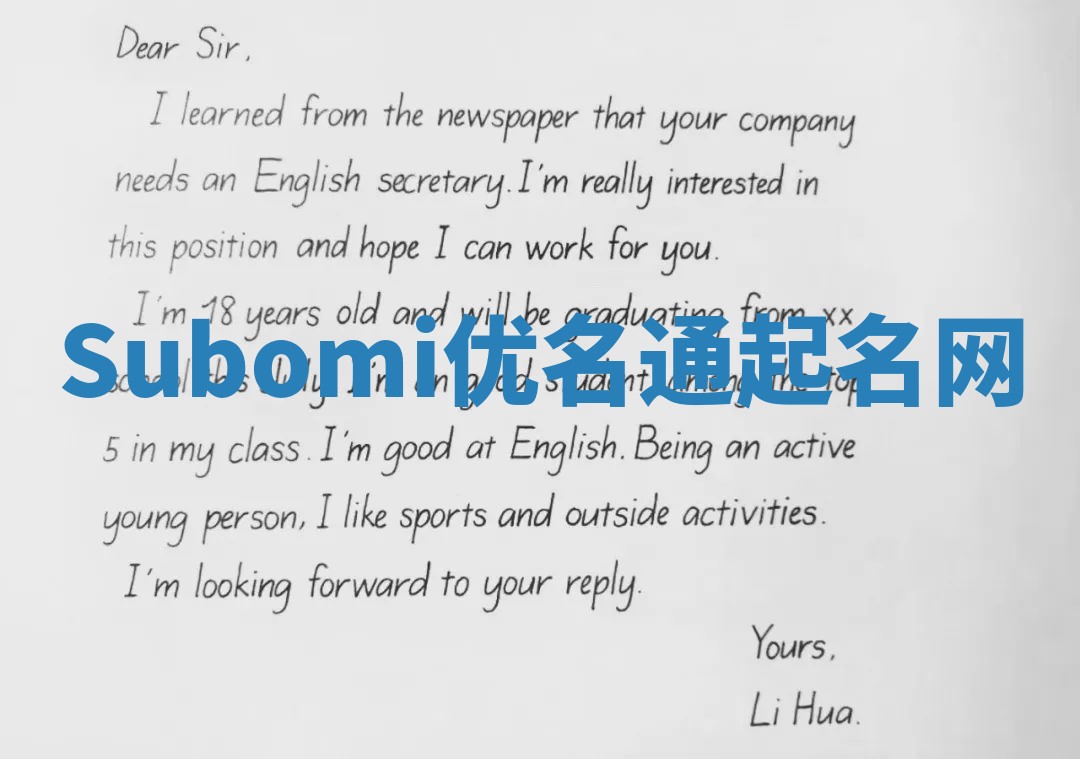 Dear Sir,
I learned from the newspaper that your company
needs an English secretary. I'm really interested in
this position and hope I can work for you.
I'm 18 years old and will be graduating from xx
Subomi优名通起名网
school this July. I'm an good student among the top
5 in my class. I'm good at English. Being an active
young person, I like sports and outside activities.
I'm looking forward to your reply.
Yours,
Li Hua.